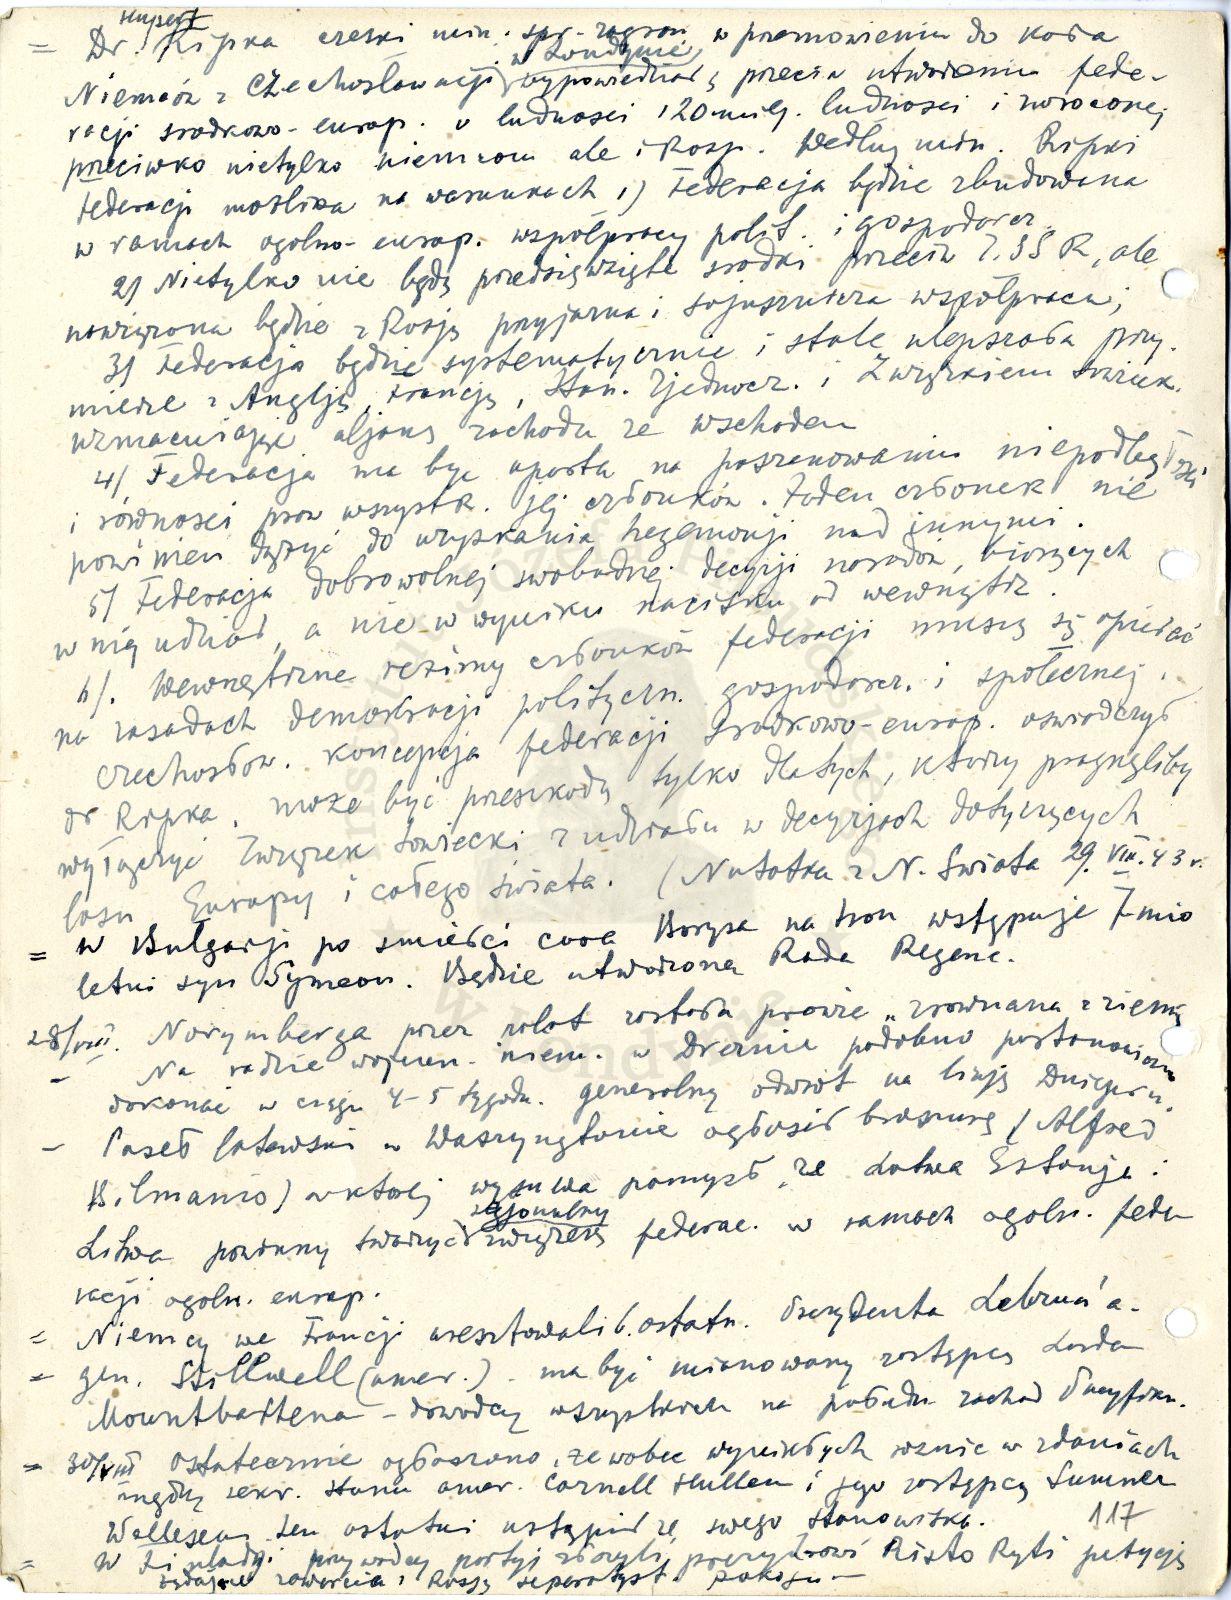 Hupert
= Dr. Ripka czeski min. spr. zagran. w przemowieniu do koła
w Londynie
Niemców z Czechosłowacji wypowiedział się przeciw utworzeniu fede-
racji srodkowo-europ. o ludnosci 120 milj. ludnosci i zwroconej
przeciwko nietylko niemcom ale i Rosji. Według min. Ripki
Federacji możliwa na warunkach 1) Federacja będzie zbudowana
w ramach ogolno-europ. współpracy polit. i gospodarcz.
2) Nietylko nie będą przedsięwzięte srodki przeciw Z.SSR, ale
nawiązana będzie z Rosją przyjazna i sojusznicza współpraca;
3) Federacja będzie systematycznie i stale ulepszała przy-
mierze z Anglją, Francją, Stan. Zjednocz. i Związkiem Sowieck.
wzmacniając aljans zachodu ze wschodem
4) Federacja ma być oparta na poszanowaniu niepodległości
i równosci praw wszystk. jej członków. Żaden członek nie
powinien dążyć do uzyskania hegemonji nad innymi.
5) Federacja dobrowolnej swobodnej decyzji narodów, biorących
w niej udział, a nie w wyniku nacisku od wewnątrz.
6). Wewnętrzne reżimy członków federacji muszą się opierać
na zasadach demokracji polityczn. gospodarcz. i społecznej.
Czechosłow. koncepcja federacji srodkowo-europ. oswiadczył
dr Ripka, może być przeszkodą tylko dla tych, którzy pragnęliby
wyłączyć Związek Sowiecki z udziału w decyzjach dotyczących
losu Europy i całego świata. (Notatka z N. Swiata 29. VIII. 43 r.
= W Bulgarji po smierci cara Borysa na tron wstępuje 7-mio
letni syn Symeon. Będzie utworzona Rada Regenc.
28/VIII. Norymberga przez nalot została prawie „zrownana z ziemią
- Na radzie wojenn. niem. w Dreznie podobno postanowiono
dokonać w ciągu 4-5 tygodn. generalny odwrót na linję Dniepru.
- Poseł łotewski w Waszyngtonie ogłosił broszurę (Alfred
Bilmanis) w ktorej wysuwa pomysł, że Łotwa Estonja i
regjonalny
Litwa powinny tworzyć związek federac. w ramach ogoln. fede
racji ogoln. europ.
= Niemcy we Francji aresztowali b. ostatn. Prezydenta Lebrun'a-
= gen. Stillwell (amer.) - ma być mianowany zastępcą Lorda
Mountbattena - dowodcy wszystkich na połudn. zachod Pacyfiku.
= 30/VIII ostatecznie ogłoszono, że wobec wynikłych różnic w zdaniach
między sekr. stanu amer. Cornell Hullem i jego zastępcą Sumner
Wellesem ten ostatni ustąpił ze swego stanowiska.
117
= W Finlandji przywodcy partyj złożyli prezydentowi Risto Ryti petycję
żądając zawarcia z Rosją separatyst. pokoju -